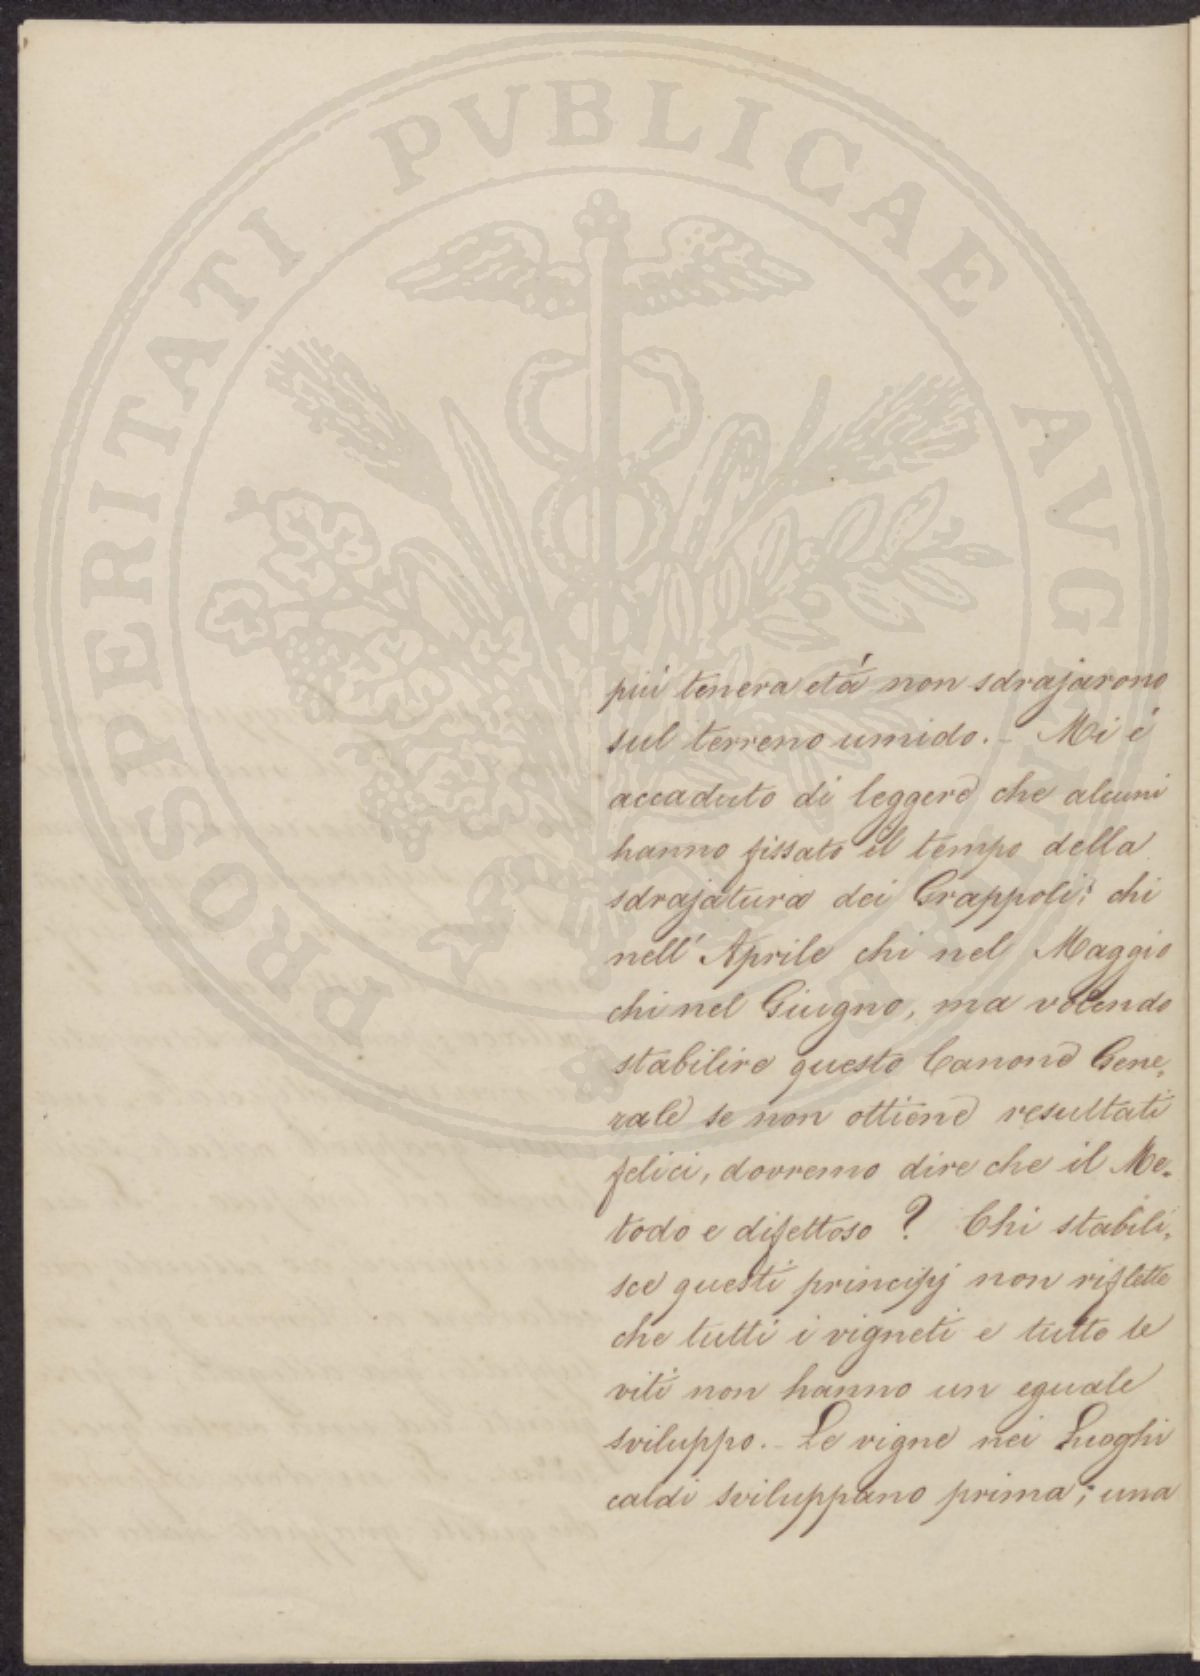 PROSPERITATI PVBLICAE AVGENDAE
piú tenera etá non sdrajarono
sul terreno umido. - Mi é
accaduto di leggere che alcuni
hanno fissato il tempo della
sdrajatura dei Grappoli; chi
nell' Aprile chi nel Maggio
chi nel Giugno, ma volendo
stabilire questo Canone Gene,
rale se non ottiene resultati
felici, dovremo dire che il Me,
todo e difettoso? Chi stabili,
sce questi principj non riflette
che tutti i vigneti e tutte le
viti non hanno un eguale
sviluppo. - Le vigne nei Luoghi
caldi sviluppano prima; una